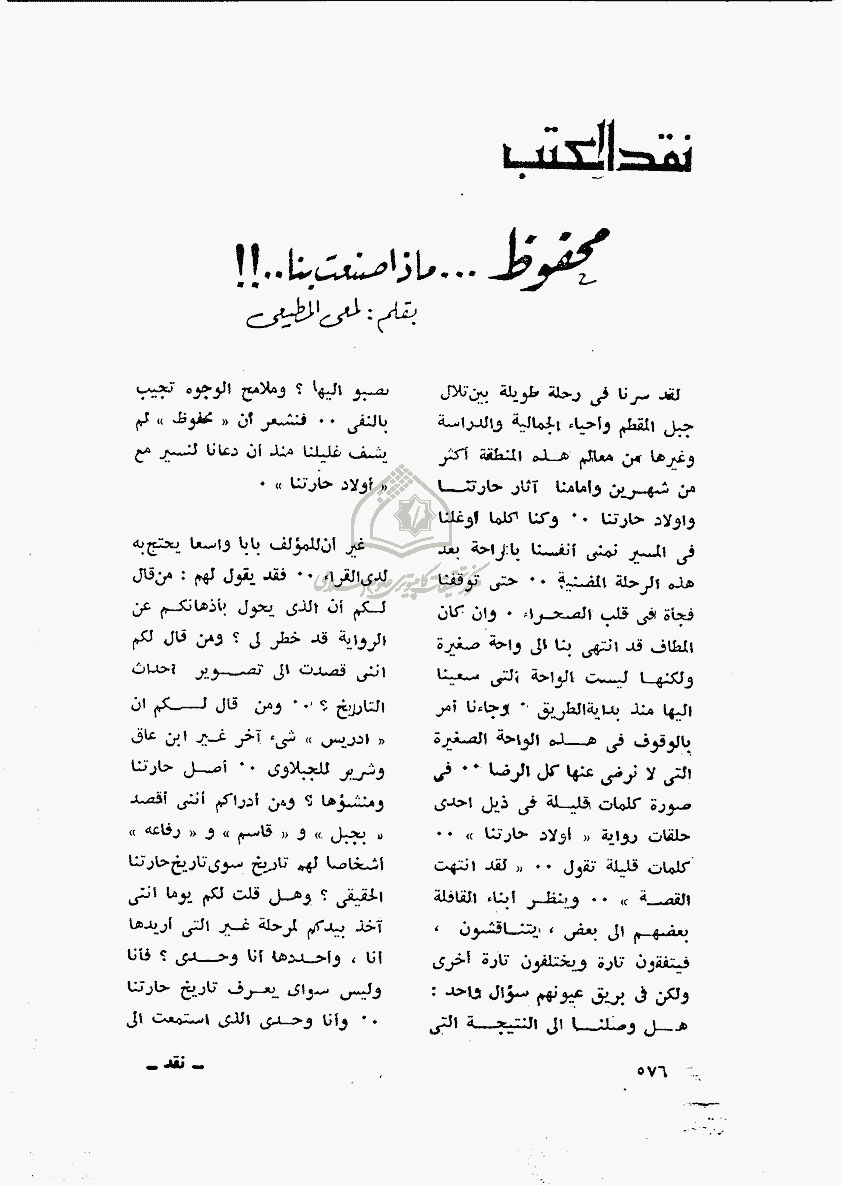 نقد الكتب
محفوظ ... ماذا صنعت بنا..!!
بقلم : لمعى المطيعى
لقد سرنا فى رحلة طويلة بين تلال
جبل المقطم وأحياء الجمالية والدراسة
وغيرها من معالم هــذه المنطقة أكثر
من شهـرين وأمامنا آثار حارتنــا
واولاد حارتنا ٠٠ وكنا كلما أوغلنا
فى المسير نمنى أنفسنا بالراحة بعد
هذه الرحلة المضنية ٠٠ حتى توقفنا
فجأة فى قلب الصحـراء ٠ وان كان
المطاف قد انتهى بنا الى واحة صغيرة
ولكنهـا ليست الواحة التى سعينا
اليها منذ بداية الطريق ٠٠ وجاءنا أمر
بالوقوف فى هــذه الواحة الصغيرة
التى لا نرضى عنها كل الرضا ٠٠ فى
صورة كلمات قليـلة فى ذيل احدى
حلقات رواية « أولاد حارتنا » ٠٠
كلمات قليلة تقول ٠٠ « لقد انتهت
القصـة » ٠٠ وينظـر أبناء القافلة
بعضهـم الى بعض ، يتنـاقشون ،
فيتفقون تارة ويختلفون تارة أخرى
ولكن فى بريق عيونهم سؤال واحد :
هــل وصلنــا الى النتيجــة التى
نصبو اليها ؟ وملامح الوجوه تجيب
بالنفى ٠٠ فنشعر أن « محفوظ » لم
يشف غليلنا منذ أن دعانا لنسير مع
« أولاد حارتنا » ٠
غير أن للمؤلف بابا واسعا يحتج به
لدى القراء ٠٠ فقد يقول لهم : من قال
لـكم أن الذى يحول بأذهانكـم عن
الرواية قد خطر لى ؟ ومن قال لكم
اننى قصدت الى تصـوير أحداث
التاريخ ؟ ٠٠ ومن قال لــكم ان
« ادريس » شىء آخر غــير ابن عاق
وشرير للجبلاوى ٠٠ أصـل حارتنا
ومنشؤها ؟ ومن أدراكم أننى أقصد
« بجبل » و « قاسم » و « رفاعه »
أشخاصا لهم تاريخ سوى تاريخ حارتنا
الحقيقى ؟ وهـل قلت لكم يوما اننى
آخذ بيدكم لمرحلة غـير التى أريدها
أنا ، وأحـددها أنا وحـدى ؟ فأنا
وليس سواى يعـرف تاريخ حارتنا
٠٠ وأنا وحـدى الذى استمعت الى
٥٧٦
ـ نقد ـ